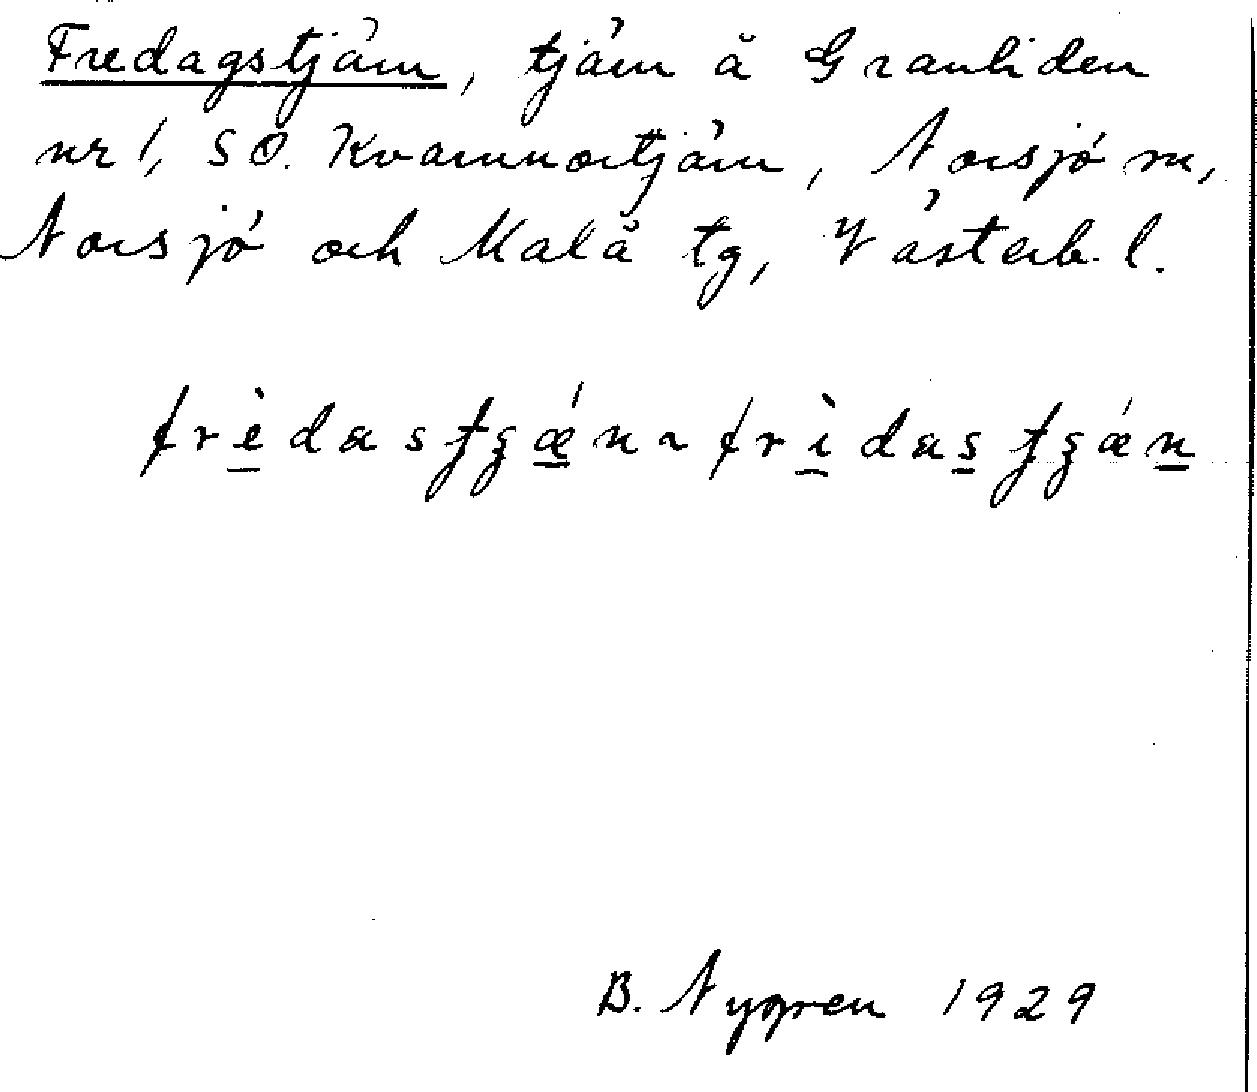 Fredagstjärn, tjärn å Granliden
nr 1, SO. Kvarnmortjärn, Norsjö sn,
Norsjö och Malå tg, Västerb. l.
B. Nygren 1929